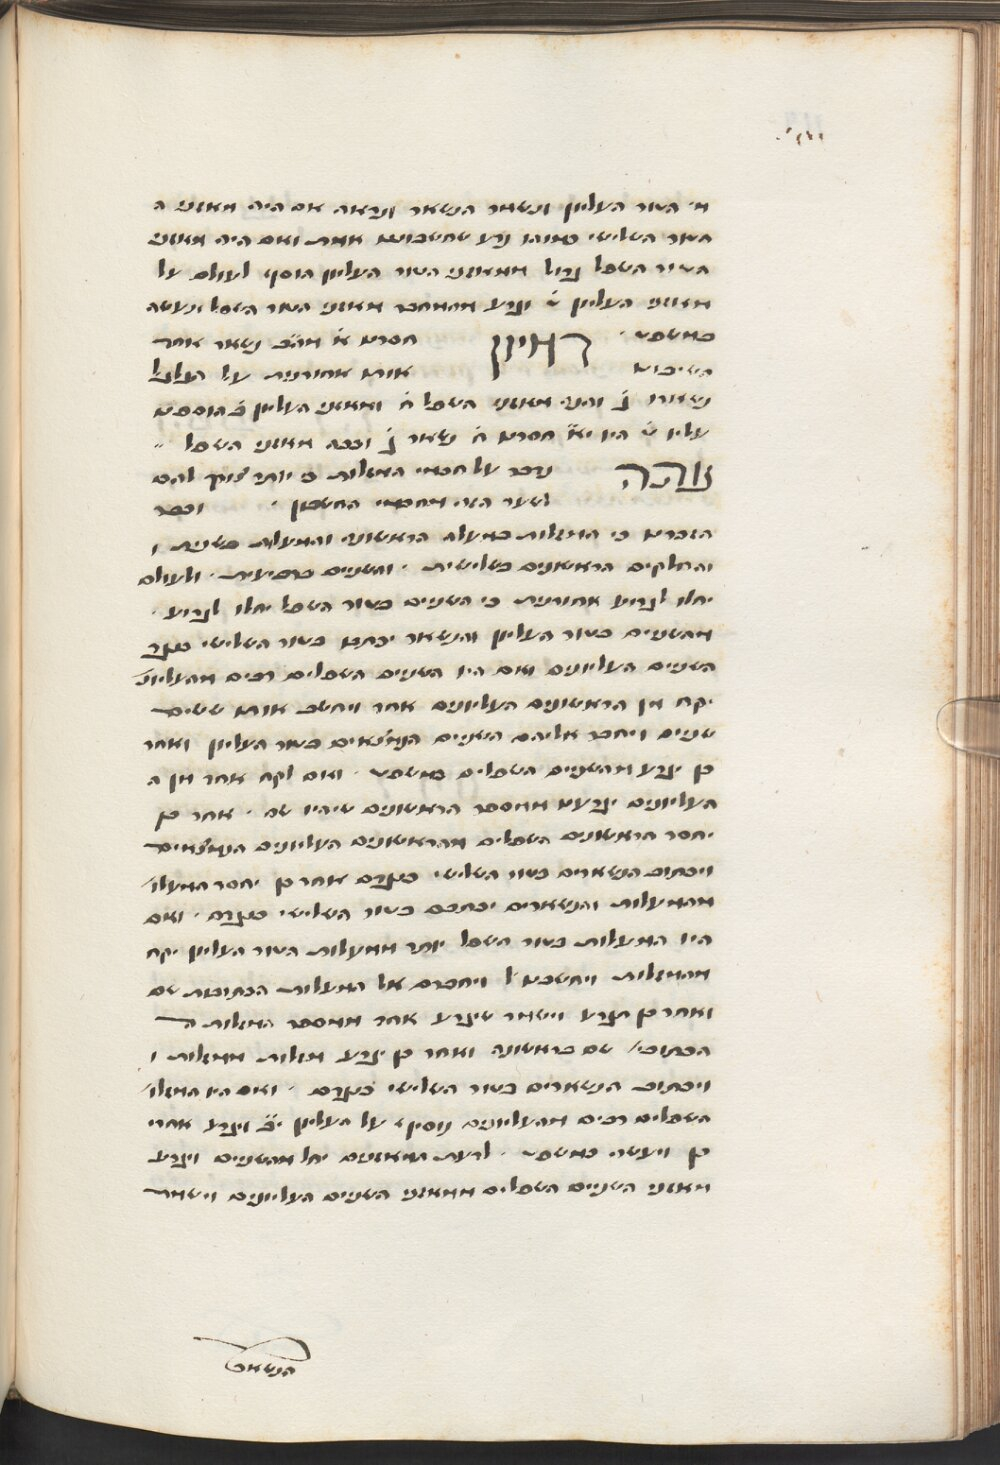 מן הטור העליון ונשמר הנשאר ונראה אם היה מאזני ה
הטור השלישי כמוהו נדע שחשבונינו אמת ואם היה מאזני
הטור השפל גדול ממאזני הטור העליון הוסף לעולם על
מאזני העליון ט ונגרע מהמחובר מאזני הטור השפל ונעשה
כמשפט
דמיון
חסרנו א מב נשאר אחד
השיבונו
אותו אחורנית על הגלגל
נשארו והנה מאזני השפל ח ומאזני העליון ב הוספנו
עליו ט היו יא חסרנו ח נשאר ג וככה מאזני השפל
עתה
נדבר על חכמי המזלות כי יותר צורך להם
לשער הזה מחכמי החשבון וכבר
הזכרנו כי המזלות במעלה הראשונה והמעלות בשנית ו
והחלקים הראשונים בשלישית והשניים ברביעית ולעולם
יחלו לגרוע אחורנית כי השניים בטור השפל יחלו לגרוע
מהשניים בטור העליון והנשאר יכתבו בטור השלישי כנגד
השניים העליונים ואם היו השניים השפלים רבים מהעליוני
יקח מן הראשונים העליונים אחד ויחשב אותו ששים
שניים ויחבר אליהם השניים הנמצאים בטור העליון ואחר
כן יגרע מהשניים השפלים כמשפט ואם לקח אחד מן ה
העליונים יגרענו ממספר הראשונים שיהיו שם אחר כן
יחסר הראשונים השפלים מהראשונים העליונים הנמצאים
ויכתוב הנשארים בטור השלישי כנגדם אחר כן יחסר המעלו
מהמעלות והנשארים יכתבם בטור השלישי כנגדם ואם
היו המעלות בטור השפל יותר ממעלות הטור העליון יקח
מהמזלות ויחשבנו ל ויחברם אל המעלות הכתובות שם
ואחר כן יגרע וישמר שיגרע אחד ממספר המזלות ה
הכתובי שם בראשונה ואחר כן יגרע מזלות ממזלות ו
ויכתוב הנשארים בטור השלישי כנגדם ואם היו המזלו
השפלים רבים מהעליונים נוסיף על העליון יב ויגרע אחרי
כן ויעשה כמשפט לדעת המאזנים יחל מהשניים ויגרע
מאזני השניים השפלים ממאזני השניים העליונים וישמור
הנשאר